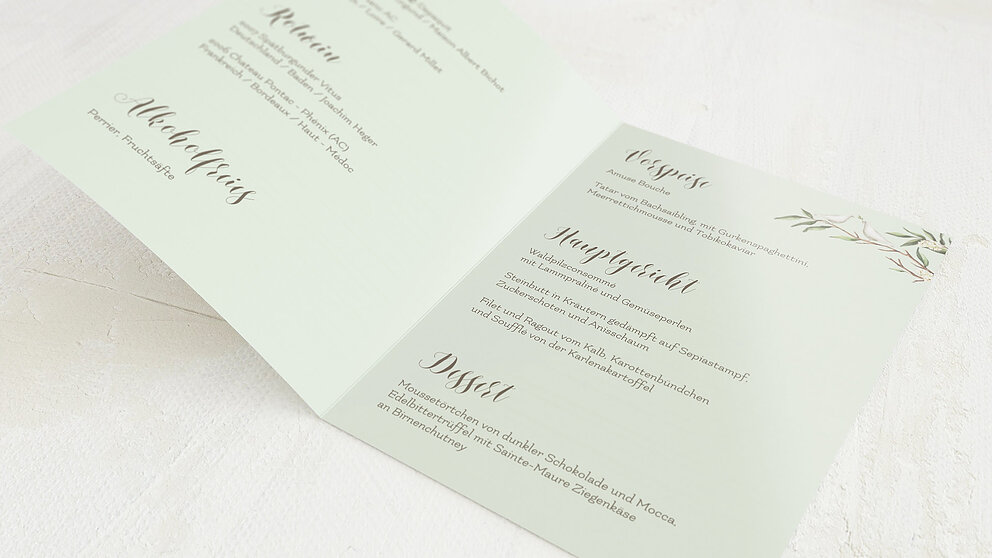 Gerard Millet
Marion Albert Bichot
Rotwein
Spätburgunder Vitus
Deutschland / Baden / Joachim Heger
2006 Chateau Pontac - Phenix (AC)
Frankreich / Bordeaux / Haut - Medoc
Alkoholfreies
Perrier, Fruchtsäfte
Vorspeise
Amuse Bouche
Tatar vom Bachsaibling, mit Gurkenspaghettini,
Meerrettichmousse und Tobikokaviar
Hauptgericht
Waldpilzconsomme
mit Lammpraline und Gemüseperlen
Steinbutt in Kräutern gedampft auf Sepiastampf,
Zuckerschoten und Anisschaum
Filet und Ragout vom Kalb, Karottenbündchen
und Souffle von der Karlenakartoffel
Dessert
Moussetörtchen von dunkler Schokolade und Mocca,
Edelbittertrüffel mit Sainte-Maure Ziegenkäse
an Birnenchutney